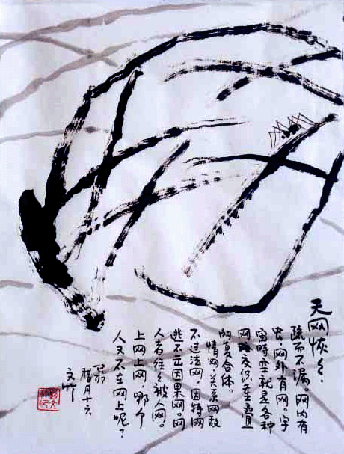 天网恢々。
疏而不漏。网内有
虫，网外有网。宇
宙時空就是各种
网络交织重叠
的复合体。
情网关系网
不过法网。因特网
逃不 因果网。网
人者 被人网。
上网上网，哪个
人又不在网上呢？
腊月十六